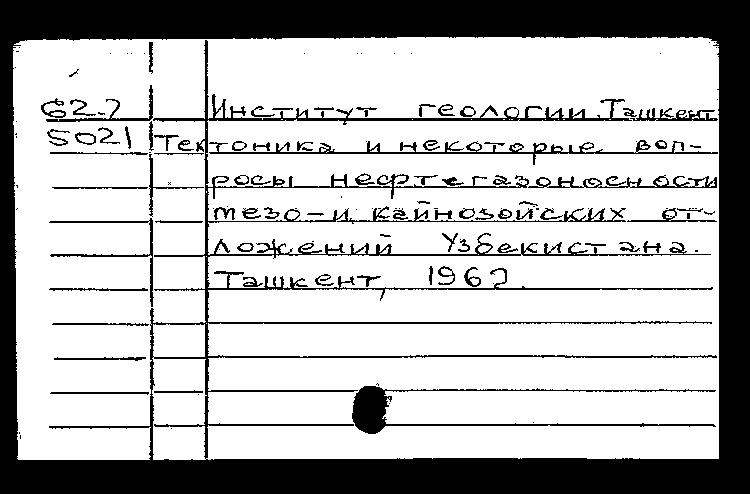 62-7 Институт геологии. Ташкент
5021 Тектоника и некоторые воп-
росы нефтегазоносности
мезо- и кайнозойских от-
ложений Узбекистана.
Ташкент, 1962.